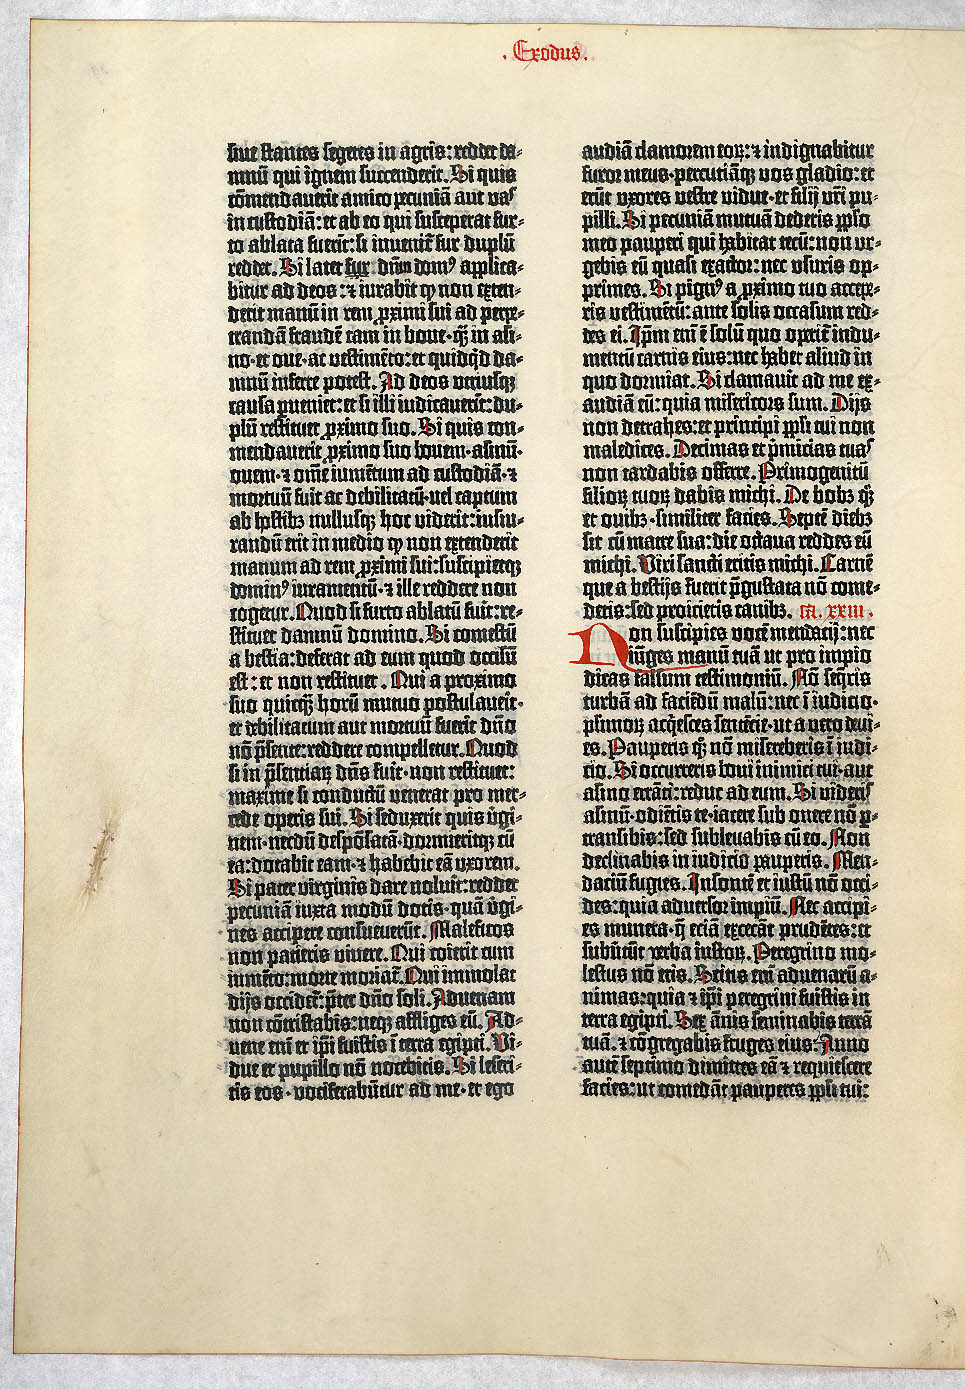 . Exodus .
sive stantes segetes in agris: reddet da-
mnū qui ignem succenderit. Si quis
cōmendaverit amico pecuniā aut vas
in custodiā: et ab eo qui susceperat fur-
to ablata fuerit: si invenit̄ fur duplū
reddet. Si latet fur dn̄us domꝰ applica-
bitur ad deos: ⁊ iurabit ꝙ non exten-
derit manū in rem ꝓximi sui ad perpe-
trandā fraudē tam in bove · ꝙ̄ in asi-
no · et ove · ac vestimēto: et quidqd da-
mnū inferre potest. Ad deos utriusqꝫ
causa ꝑveniet: et si illi iudicaverūt: du-
plū restituet ꝓximo suo. Si quis com-
mendaverit ꝓximo suo bovem · asinū ·
ovem · ⁊ om̄e iumētum ad custodiā · ⁊
mortuū fuit ac debilitatū · vel captum
ab hostibꝫ nullusqꝫ hoc viderit: iusiu-
randū erit in medio ꝙ non extenderit
manum ad rem ꝓximi sui: suscipietqꝫ
dominꝰ iuramentū · ⁊ ille reddere non
cogetur. Quod si furto ablatū fuit: re-
stituet damnū domino. Si comestū
a bestia: deferat ad eum quod occisū
est: et non restituet. Qui a proximo
suo quicqꝫ horū mutuo postulaverit ·
et debilitatum aut mortuū fuerit dn̄o
nō p̄sente: reddere compelletur. Quod
si in p̄sentiaꝝ dn̄s fuit · non restituet:
maxime si conductū venerat pro mer-
cede operis sui. Si seduxerit quis v̄gi-
nem · necdū despōsatā · dormieritqꝫ cū
ea: dotabit eam · ⁊ habebit eā uxorem.
Si pater virginis dare noluit: reddet
pecuniā iuxta modū dotis · quā v̄gi-
nes accipere consueverūt. Maleficos
non patieris vivere. Qui coierit cum
iumēto: morte moriat̄. Qui immolat
dijs occidet̄: p̄ter dn̄o soli. Advenam
non cōtristabis: neqꝫ affliges eū. Ad-
vene eni et ip̄i fuistis ī terra egipti. Vi-
due et pupillo nō nocebitis. Si leseri-
tis eos · vociferabūtur ad me · et ego
audiā clamorem eoꝝ: ⁊ indignabitur
furor meus · percutiāqꝫ vos gladio: et
erūt uxores vestre vidue · et filij vr̄i pu-
pilli. Si pecuniā mutuā dederis ꝓplo
meo pauperi qui habitat tecū: non ur-
gebis eū quasi exactor: nec usuris op-
primes. Si pignꝰ a ꝓximo tuo accepe-
ris vestimētū: ante solis occasum red-
des ei. Ip̄m eni ē solū quo operit̄ indu-
mentū carnis eius: nec habet aliud in
quo dormiat. Si clamavit ad me ex-
audiā eū: quia misericors sum. Dijs
non detrahes: et principi ppli tui non
maledices. Decimas et p̄micias tuas
non tardabis offerre. Primogenitū
filioꝝ tuoꝝ dabis michi. De bobꝫ qꝫ
et ovibꝫ · similiter facies. Septē diebꝫ
sit cū matre sua: die octava reddes eū
michi. Viri sancti eritis michi. Carnē
que a bestijs fuerit p̄gustata nō come-
detis: sed proicietis canibꝫ. ca. xxiii .
Non suscipies vocē mendacij: nec
iūges manū tuā ut pro impio
dicas falsum testimoniū. Nō seqris
turbā ad faciēdū malū: nec ī iudicio ·
plimoꝝ acqesces sentētie · ut a vero devi-
es. Pauperis qꝫ nō misereberis ī iudi-
cio. Si occurreris bovi inimici tui · aut
asino errāti: reduc ad eum. Si videris
asinū · odiētis te · iacere sub onere nō ꝑ-
transibis: sed sublevabis cū eo. Non
declinabis in iudicio pauperis. Men-
daciū fugies. Insontē et iustū nō occi-
des: quia adversor impiū. Nec accipi-
es munera · q̄ eciā excecāt prudētes: et
subvertūt verba iustoꝝ. Peregrino mo-
lestus nō eris. Scitis eni advenarū a-
nimas: quia ⁊ ip̄i peregrini fuistis in
terra egipti. Sex ānis seminabis terrā
tuā · ⁊ cōgregabis fruges eius. Anno
autē septimo dimittes eā ⁊ requiescere
facies: ut comedāt pauperes ppli tui: